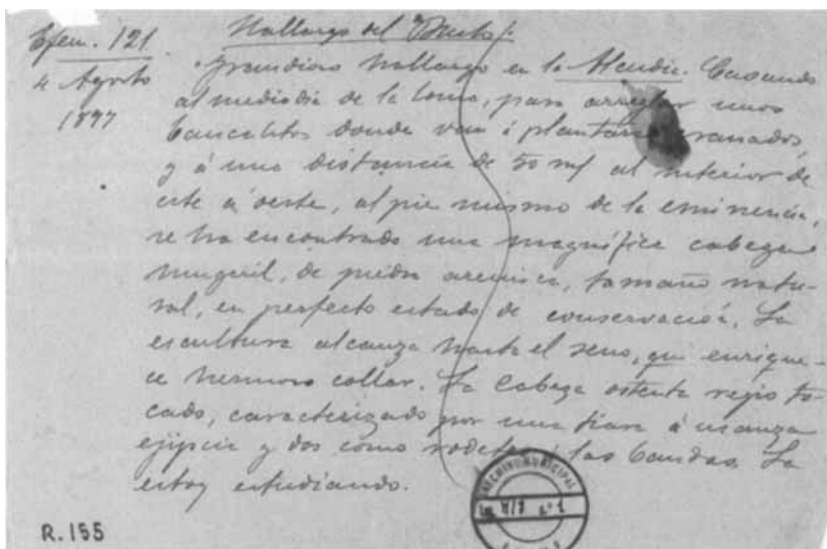 Efem. 121.
4 Agosto
1897
Hallazgo del Busto.
Grandioso hallazgo en la Alcudia. Cavando
al mediodia de la loma, para arreglar unos
bancalitos donde van á plantarse granados,
y á una distancia de 50 m/ al interior de
este á oeste, al pie mismo de la eminencia,
se ha encontrado una magnífica cabeza
mugeril, de piedra arenisca, tamaño natu-
ral, en perfecto estado de conservación. La
escultura alcanza hasta el seno, que enrique-
ce hermoso collar. La cabeza ostenta regio to-
cado, caracterizado por una tiara á usanza
ejipcia y dos como rodetes á las bandas. La
estoy estudiando.
ARCHIVO MUNICIPAL
R.155